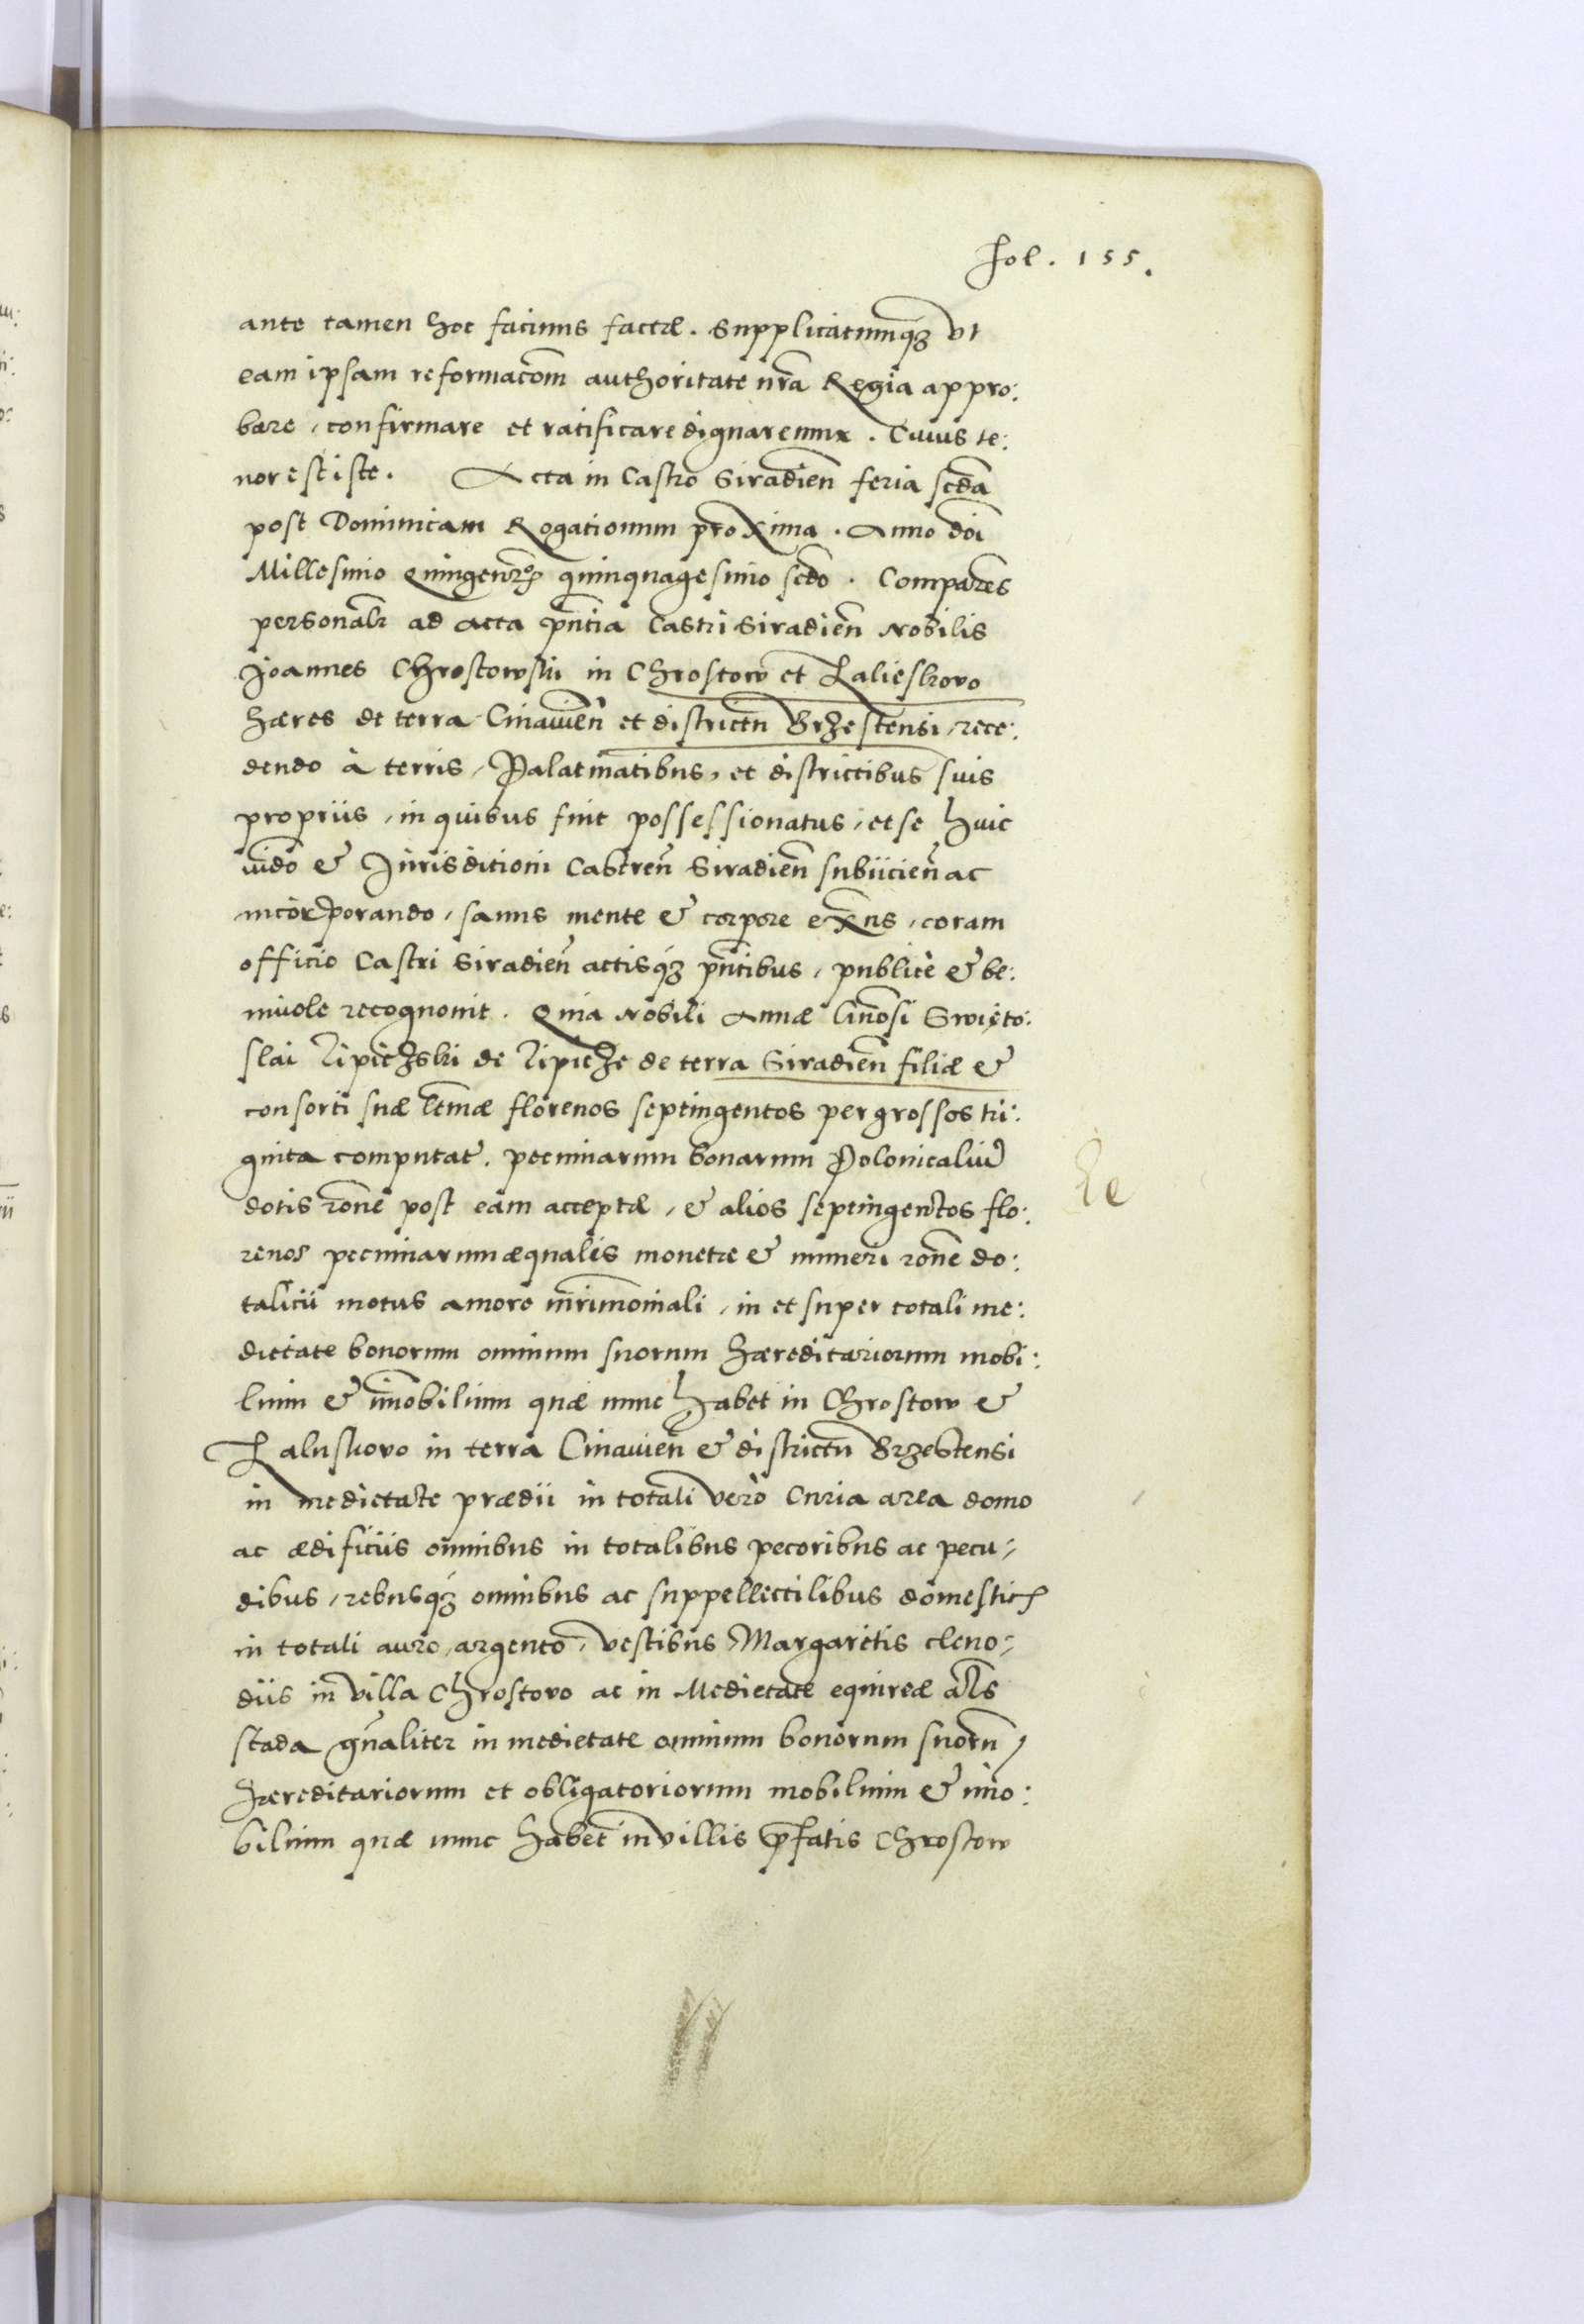 fol. 155.
ante tamen hoc facinus factæ. Supplicatumq́ꝫ vt
eam ipsam reformacōm authoritate nr̄a Regia appro:
bare, confirmare et ratificare dignaremur. Cuius te:
nor est iste. Acta in Castro Siradien̄ feria scd̄a
post Dominicam Rogationum proxima. Anno dn̄i
Millesimo Quingenꝫᵒ quinquagesimo scdō. Comparēs
personalr̄ ad acta pn̄tia Castri Siradien̄ Nobilis
Joannes Chrostowski in Chrostow et Lalieskowo
hæres de terra Cuiauien̄ et districtu Brzestensi, rece:
dendo à terris, Palatinatibus, et districtibus suis
propriis, in quibus sint possessionatus, et se huic
iudō & Jurisditioni Castren̄ Siradien̄ subiicien̄ ac
incorporando, sanus mente & corpore exn̄s, coram
officio Castri Siradien̄ actisq́ꝫ pn̄tibus, publicè & be:
niuole recognouit. Quia Nobili Annæ Gn̄osi Swięto:
slai Lipiczski de Lipicze de terra Siradien̄ filiæ &
consorti suæ ltm̄æ florenos septingentos per grossos tri:
ginta computat. pecuniarum bonarum Polonicaliū
dotis rōne post eam acceptæ, & alios septingentos flo:
renos pecuniarum æqualis monetæ & numeri rōne do:
talicii motus amore mr̄imoniali, in et super totali me:
dietate bonorum omnium suorum hæreditariorum mobi:
lium & im̄obilium quæ nunc habet in Chrostow &
Laluskowo in terra Cuiauien̄ & districtu Brzestensi
in medietate prædii in totali verò Curia area domo
ac ædificiis omnibus in totalibus pecoribus ac pecu,
dibus, rebusq́ꝫ omnibus ac suppellectilibus domestic
in totali auro, argento, vestibus Margaritis cleno,
diis in villa Chrostowo ac in Medietate equireæ al̄s
stada gn̄aliter in medietate omnium bonorum suorū
hæreditariorum et obligatoriorum mobilium & im̄o:
bilium quæ nunc habet in villis p̄fatis Chrostow